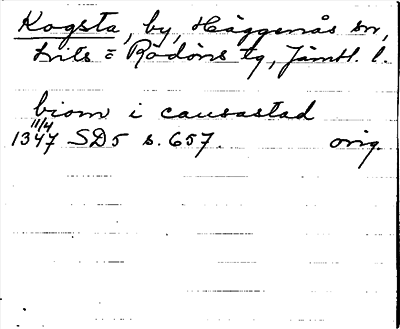 Kogsta, by, Häggenås sn,
Lits = Rödöns tg, Jämtl. l.
biorn i causastad
11/4
1347 SD5 s. 657. orig.